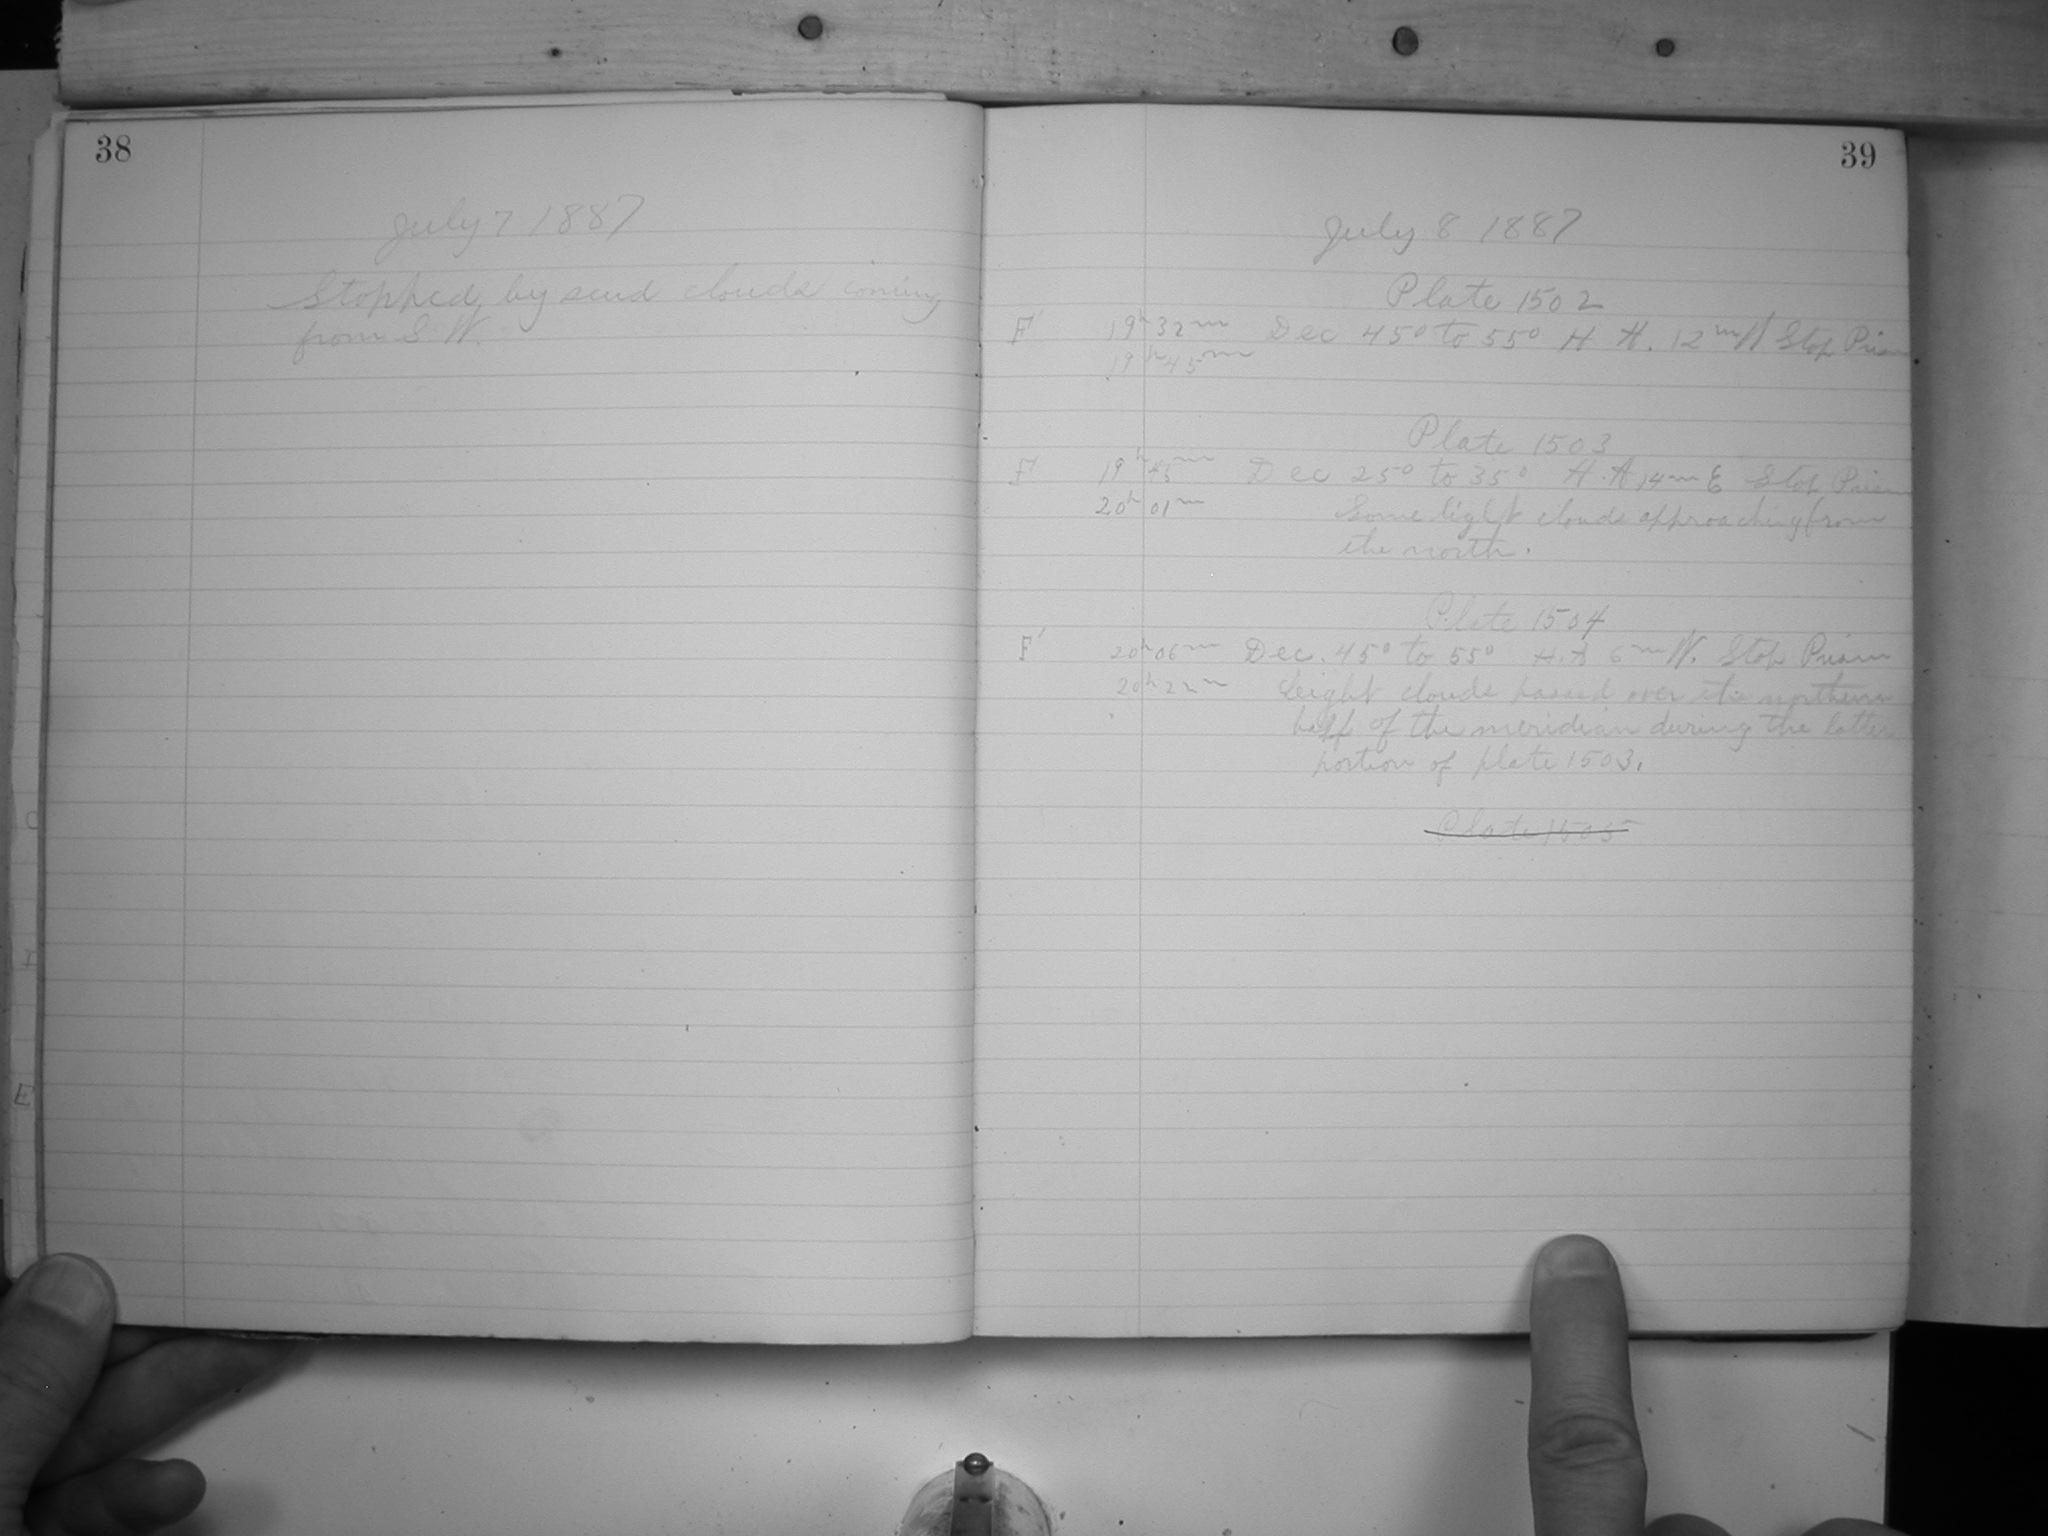 38
July 7 1887
Stopped by scud clouds coming
from S. W.
39
July 8 1887
Plate 1502
F' 19h 32m Dec 45° to 55° H A. 12m W Stop Prism
19h 45m
Plate 1503
F' 19h 45m Dec 25° to 35° H.A 14m E Stop Prism
20h 01m Some light clouds approaching from
the north.
Plate 1504
F' 20h 06m Dec. 45° to 55° H.A 6m W. Stop Prism
20h 22m Light clouds passed over the northern
half of the meridian during the latter
portion of plate 1503.
Plate 1505
E